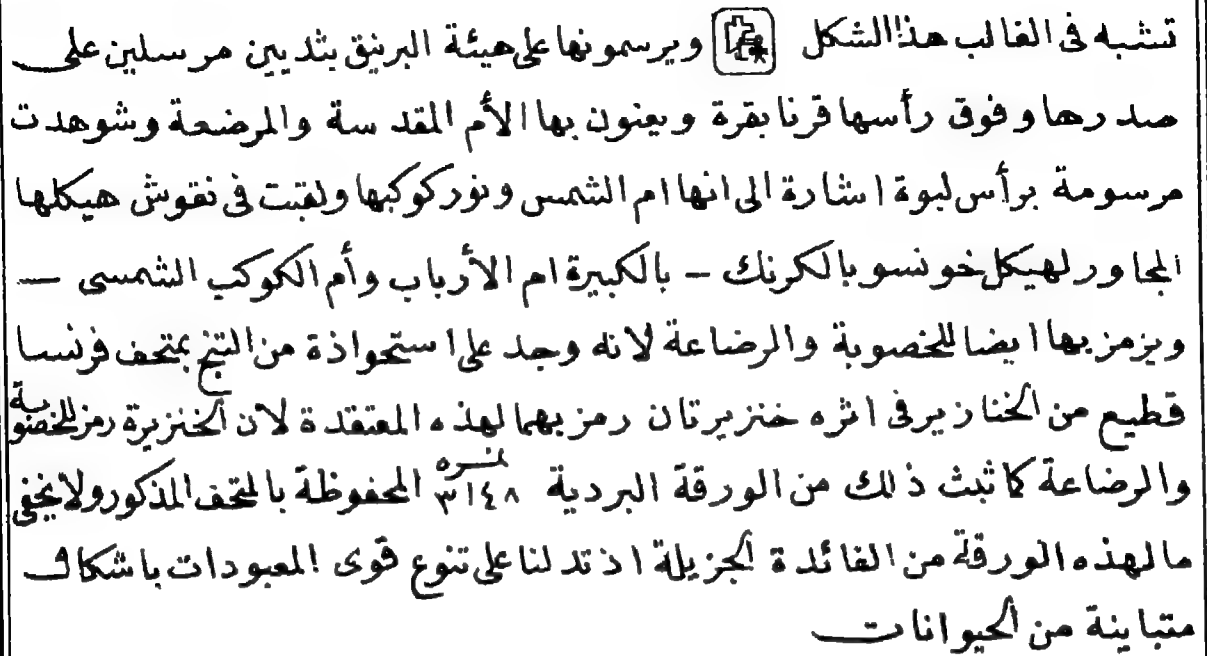 تشبه فى الغالب هذا الشكل ويرسمونها على هيئة البرنيق بثديين مرسلين على
صدرها وفوق رأسها قرنا بقرة ويعنون بها الأم المقدسة والمرضعة وشوهدت
مرسومة برأس لبوة اشارة الى انها ام الشمس ونور كوكبها ولقبت فى نقوش هيكلها
المجاور لهيكل خونسو بالكرنك – بالكبيرة ام الأرباب وأم الكوكب الشمسى –
ويرمز بها ايضا للخصوبة والرضاعة لانه وجد على استحواذة من التنج بمتحف فرنسا
قطيع من الخنازير فى اثره خنزيرتان رمز بهما لهذه المعتقدة لان الخنزيرة رمز للخصوبة
والرضاعة كما ثبت ذلك من الورقة البردية نمره ٣١٤٨ المحفوظة بالمتحف المذكور ولا يخفى
ما لهذه الورقة من الفائدة الجزيلة اذ تدلنا على تنوع قوى المعبودات باشكال
متباينة من الحيوانات